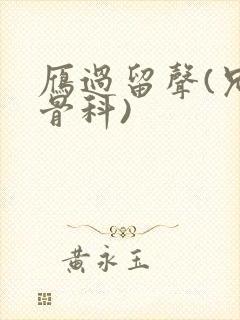 雁過留聲(兄
骨科)
黃永玉